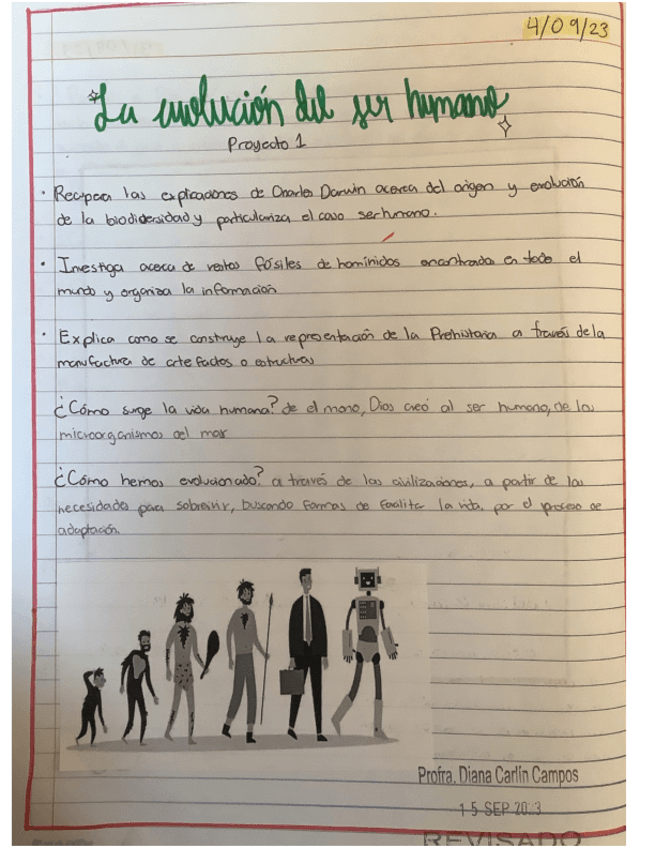 4/09/23
La evolución del ser humano
Proyecto 1
• Recupera las explicaciones de Charles Darwin acerca del origen y evolución
de la biodidersidad y particulariza el caso ser humano.
• Investiga acerca de restos fósiles de homínidos encontrados en todo el
mundo y organiza la información
• Explica como se construye la representación de la Prehistoria a través de la
manufactura de artefactos o estructuras
¿Cómo surge la vida humana? de el mono, Dios creó al ser humano, de los
microorganismos del mar
¿Cómo hemos evolucionado? a través de las civilizaciones, a partir de las
necesidades para sobrevivir, buscando formas de facilita la vida. por el proceso de
adaptación.
Profra. Diana Carlín Campos
15 SEP 2023
REVISADO